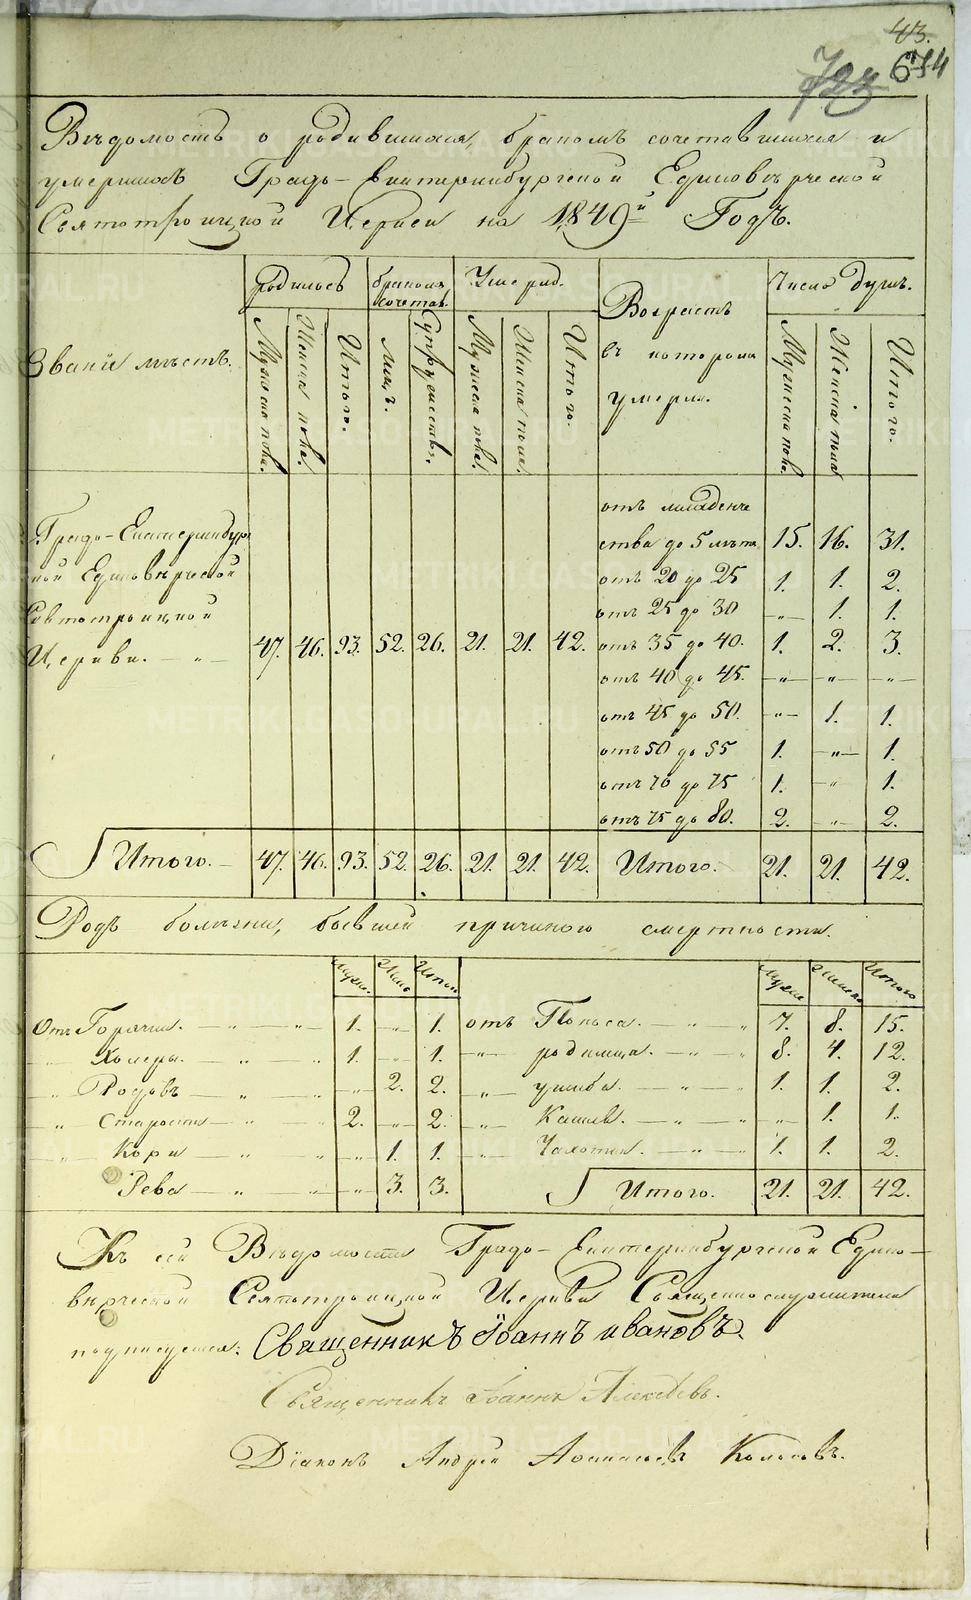 43.
723
674
Вѣдомость о родившихся, бракомъ сочетавшихся и
умершихъ Градо-Екатеринбургской Единовѣрческой
Святотроицкой Церкви на 1849й Годъ.
Званіе мѣстъ.
родилось
бракомъ сочетав.
Умерло.
Возрастъ въ котором умерли.
Число душъ.
Мужеска пола. Женска пола. Итого. лицъ. Супружествъ. Мужеска пола. Женска пола. Итого. Мужеска пола. Женска пола Итого.
Градо-Екатеринбург-
ской Единовѣрческой
Святотроицкой
Церкви. — „ — 47. 46. 93. 52. 26. 21. 21. 42.
отъ младенче
ства до 5 лѣтъ 15. 16. 31.
отъ 20 до 25 1. 1. 2.
отъ 25 до 30 — „ — 1. 1.
отъ 35 до 40. 1. 2. 3.
отъ 40 до 45. — „ — — „ — — „ —
отъ 45 до 50. — „ — 1. 1.
отъ 50 до 55 1. — „ — 1.
отъ 70 до 75 1. — „ — 1.
отъ 75 до 80. 2. — „ — 2.
Итого. — 47. 46. 93. 52. 26. 21. 21. 42. Итого. 21. 21. 42.
Родъ болѣзни, бывшей причиною смертности.
Муж. Жен. Итого Муже Женска Итого
Отъ Горячки. — „ — „ 1. — „ — 1. отъ Поноса. — „ — „ 7. 8. 15.
— Холеры. — „ — „ 1. — „ — 1. — „ — родимца. — „ — „ 8. 4. 12.
„ Родовъ — „ — „ — „ — 2. 2. — „ — ушиба. — „ — „ 1. 1. 2.
„ Старости — „ — „ 2. — „ — 2. „ Кашля. — „ — „ — „ — 1. 1.
— „ Кори — „ — „ — „ — 1. 1. „ Чахотки. — „ — „ 1. 1. 2.
Рева — „ — „ — „ — 3. 3. Итого. 21. 21. 42.
Къ сей Вѣдомости Градо-Екатеринбургской Едино-
вѣрческой Святотроицкой Церкви Священнослужители
подписуемся: Священникъ Іоаннъ ивановъ
Священникъ Іоаннъ Алексѣевъ.
Діаконъ Андрей Комосовъ.
METRIKI.GASO-URAL.RU